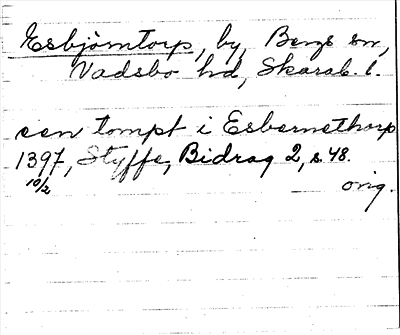 Esbjörntorp, by, Bergs sn,
Vadsbo hd, Skarab. l.
een tompt i Esbernethorp
1397, Styffe, Bidrag 2, s. 48.
10/2 orig.